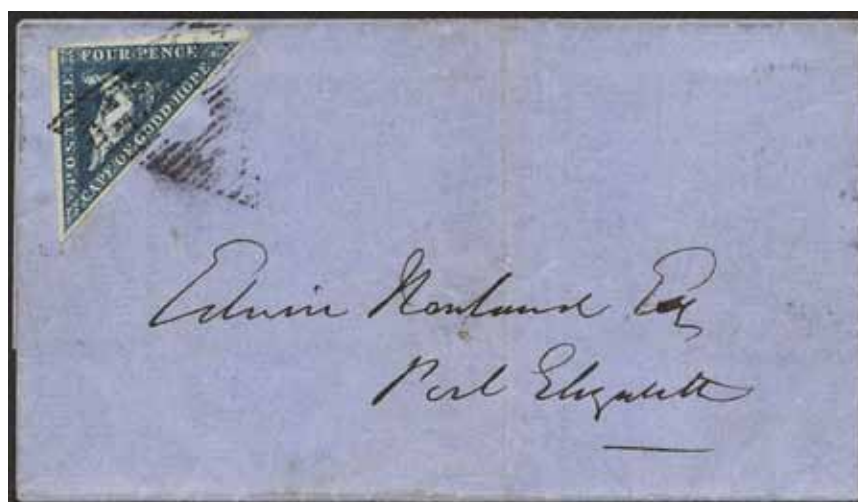 FOUR PENCE
POSTAGE
CAPE OF GOOD HOPE
Edwin Rowland Esq
Port Elizabeth